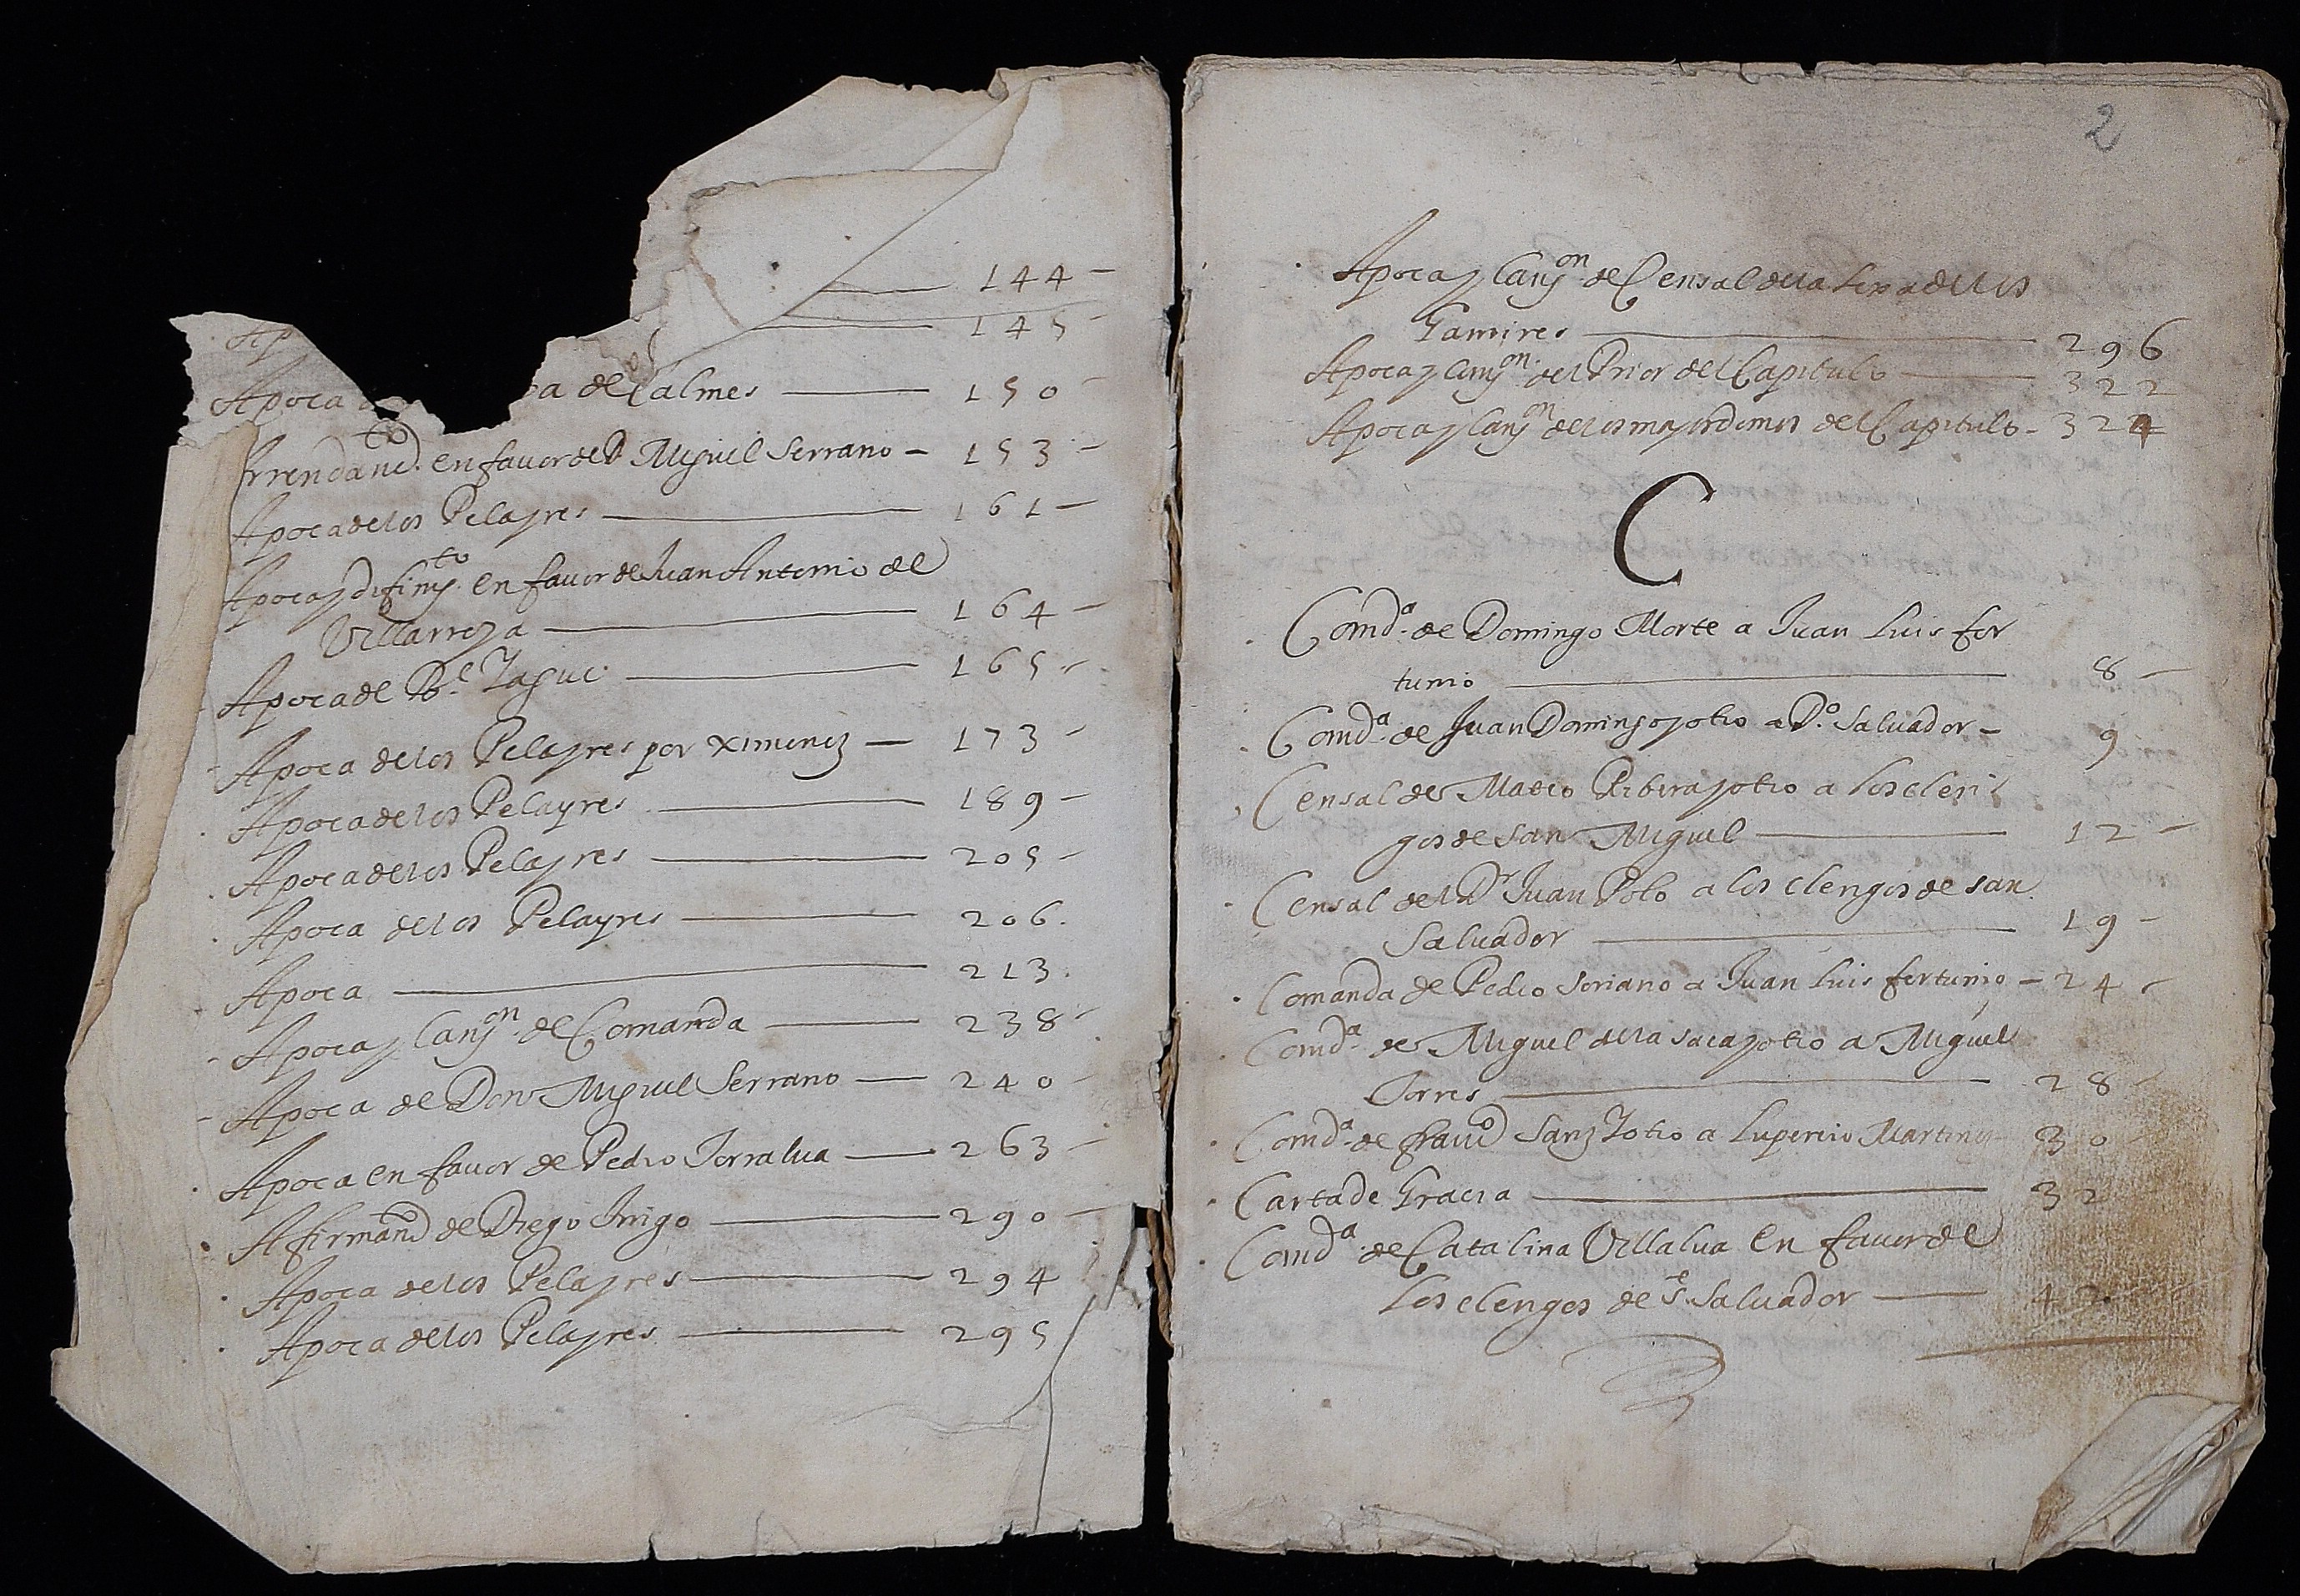 144
Ap 145
Apoca de Calmes 150
Arrendam.to en fauor de D Miguel Serrano 153
Apoca de los Pelayres 161
Apoca y difinim.to en fauor de Juan Antonio de
Villarroya 164
Apoca de 165
Apoca de los Pelayres por Ximenez 173
Apoca de los Pelayres 189
Apoca de los Pelayres 205
Apoca de los Pelayres 206
Apoca 213
Apoca y Can.on de Comanda 238
Apoca de Don Miguel Serrano 240
Apoca en fauor de Pedro Torralua 263
Afirmam.to de Diego Inigo 290
Apoca de los Pelayres 294
Apoca de los Pelayres 295
2
Apoca y Can.on de Censal de los
Ramires 296
Apoca y Can.on del Prior del Capitulo 322
Apoca y Can.on de los mayordomos del Capitulo 324
C
Comd.a de Domingo Morte a Juan Luis for
tunio 8
Comd.a de Juan Domingo y otro a D.o Saluador 9
Censal de Mateo Ribera y otro a los cleri
gos de san Miguel 12
Censal del D.r Juan Polo a los clerigos de san
Saluador 19
Comanda de Pedro Soriano a Juan Luis fortunio 24
Comd.a de Miguel de la Saca y otro a Miguel
Torres 28
Comd.a de fran.co Sanz y otro a Lupercio Martinez 30
Carta de Gracia 32
Comd.a de Catalina Villalua en fauor de
los clerigos de S. Saluador 42